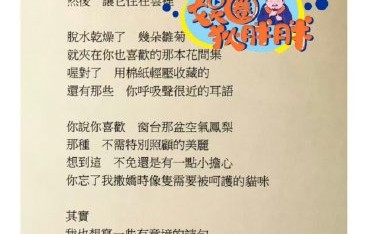 然後　讓它住在雲裡
脫水乾燥了　幾朵雛菊
就夾在你也喜歡的那本花間集
喔對了　用棉紙輕壓收藏的
還有那些　你呼吸聲很近的耳語
你說你喜歡　窗台那盆空氣鳳梨
那種　不需特別照顧的美麗
想到這　不免還是有一點小擔心
你忘了我撒嬌時像隻需要被呵護的貓咪
其實
我也想寫一些有意境的詩句
圈
狐胖胖